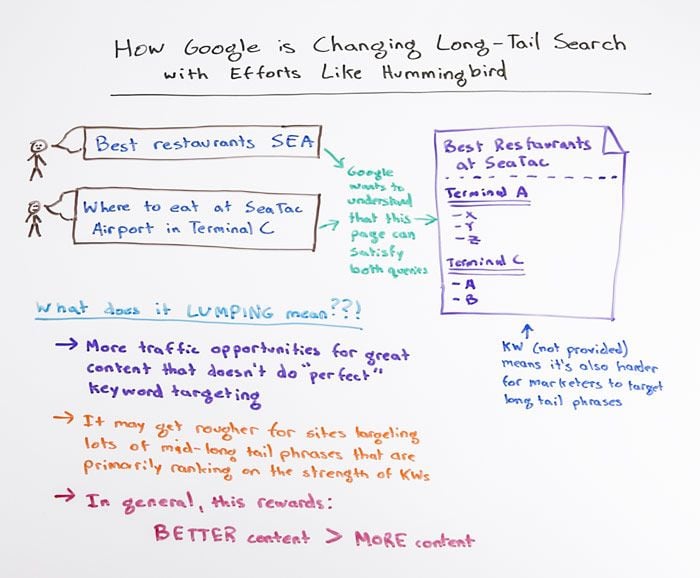 How Google is Changing Long-Tail Search
with Efforts Like Hummingbird
Best restaurants SEA
Where to eat at SeaTac
Airport in Terminal C
Google
wants to
understand
that this
page can
satisfy
both queries
Best Restaurants
at SeaTac
Terminal A
- X
- Y
- Z
Terminal C
- A
- B
KW (not provided)
means it's also harder
for marketers to target
long tail phrases
What does it LUMPING mean??!
→ More traffic opportunities for great
content that doesn't do "perfect"
keyword targeting
→ It may get rougher for sites targeting
lots of mid-long tail phrases that are
primarily ranking on the strength of KWs
→ In general, this rewards:
BETTER content > MORE content